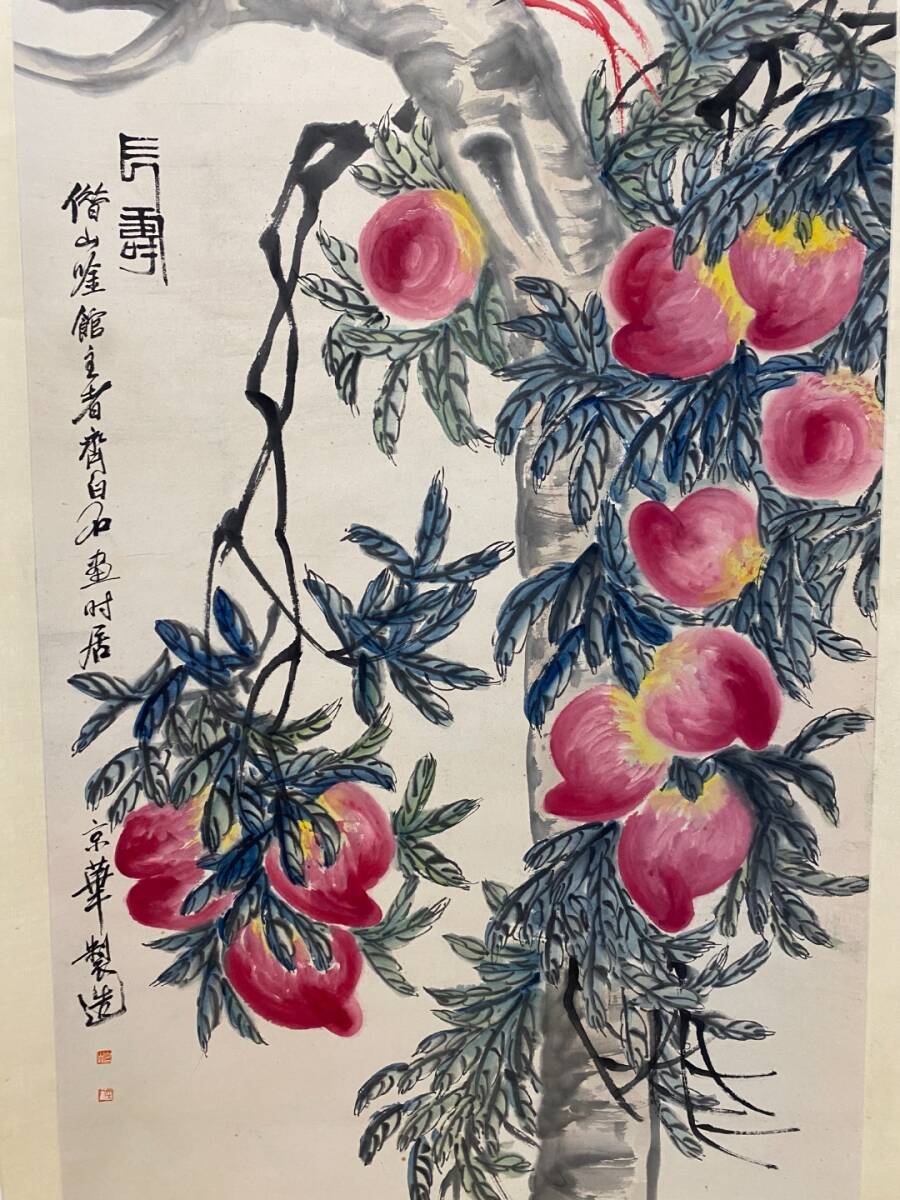 長壽
借山唫館主者齊白石畫时居
京華製造